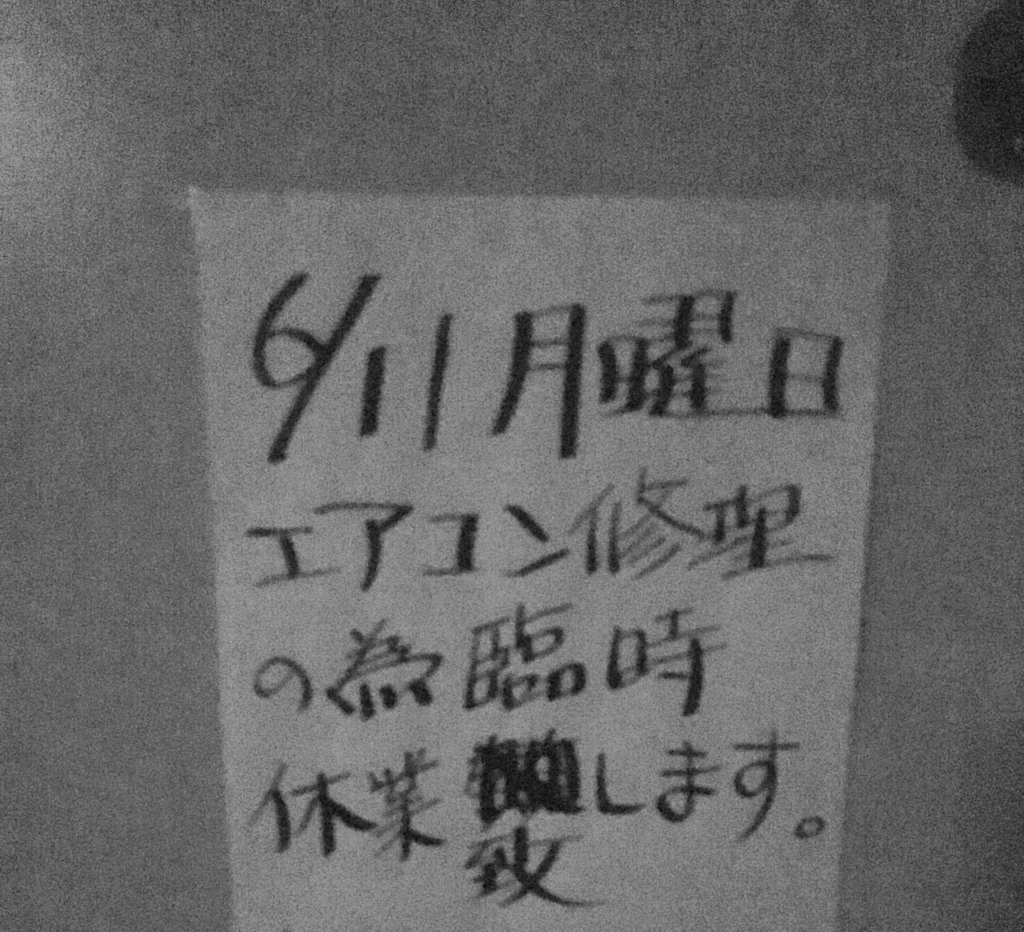 6/11月曜日
エアコン修理
の為臨時
休業致します。